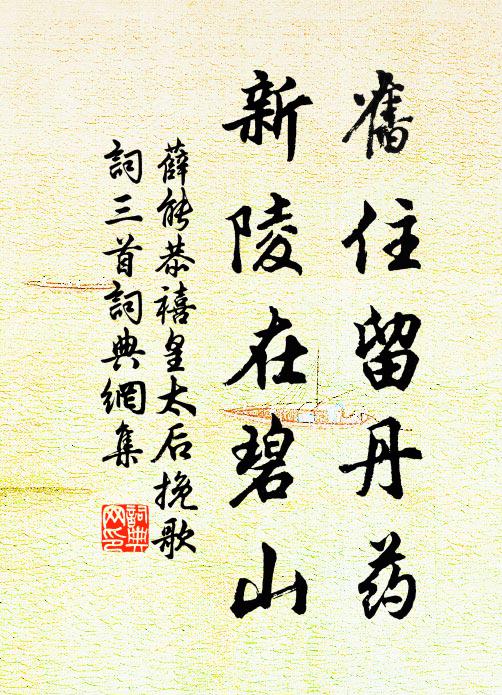 舊住留丹药
新陵在碧山
薛能恭禧皇太后挽歌
詞三首詞典網集
詞典网印